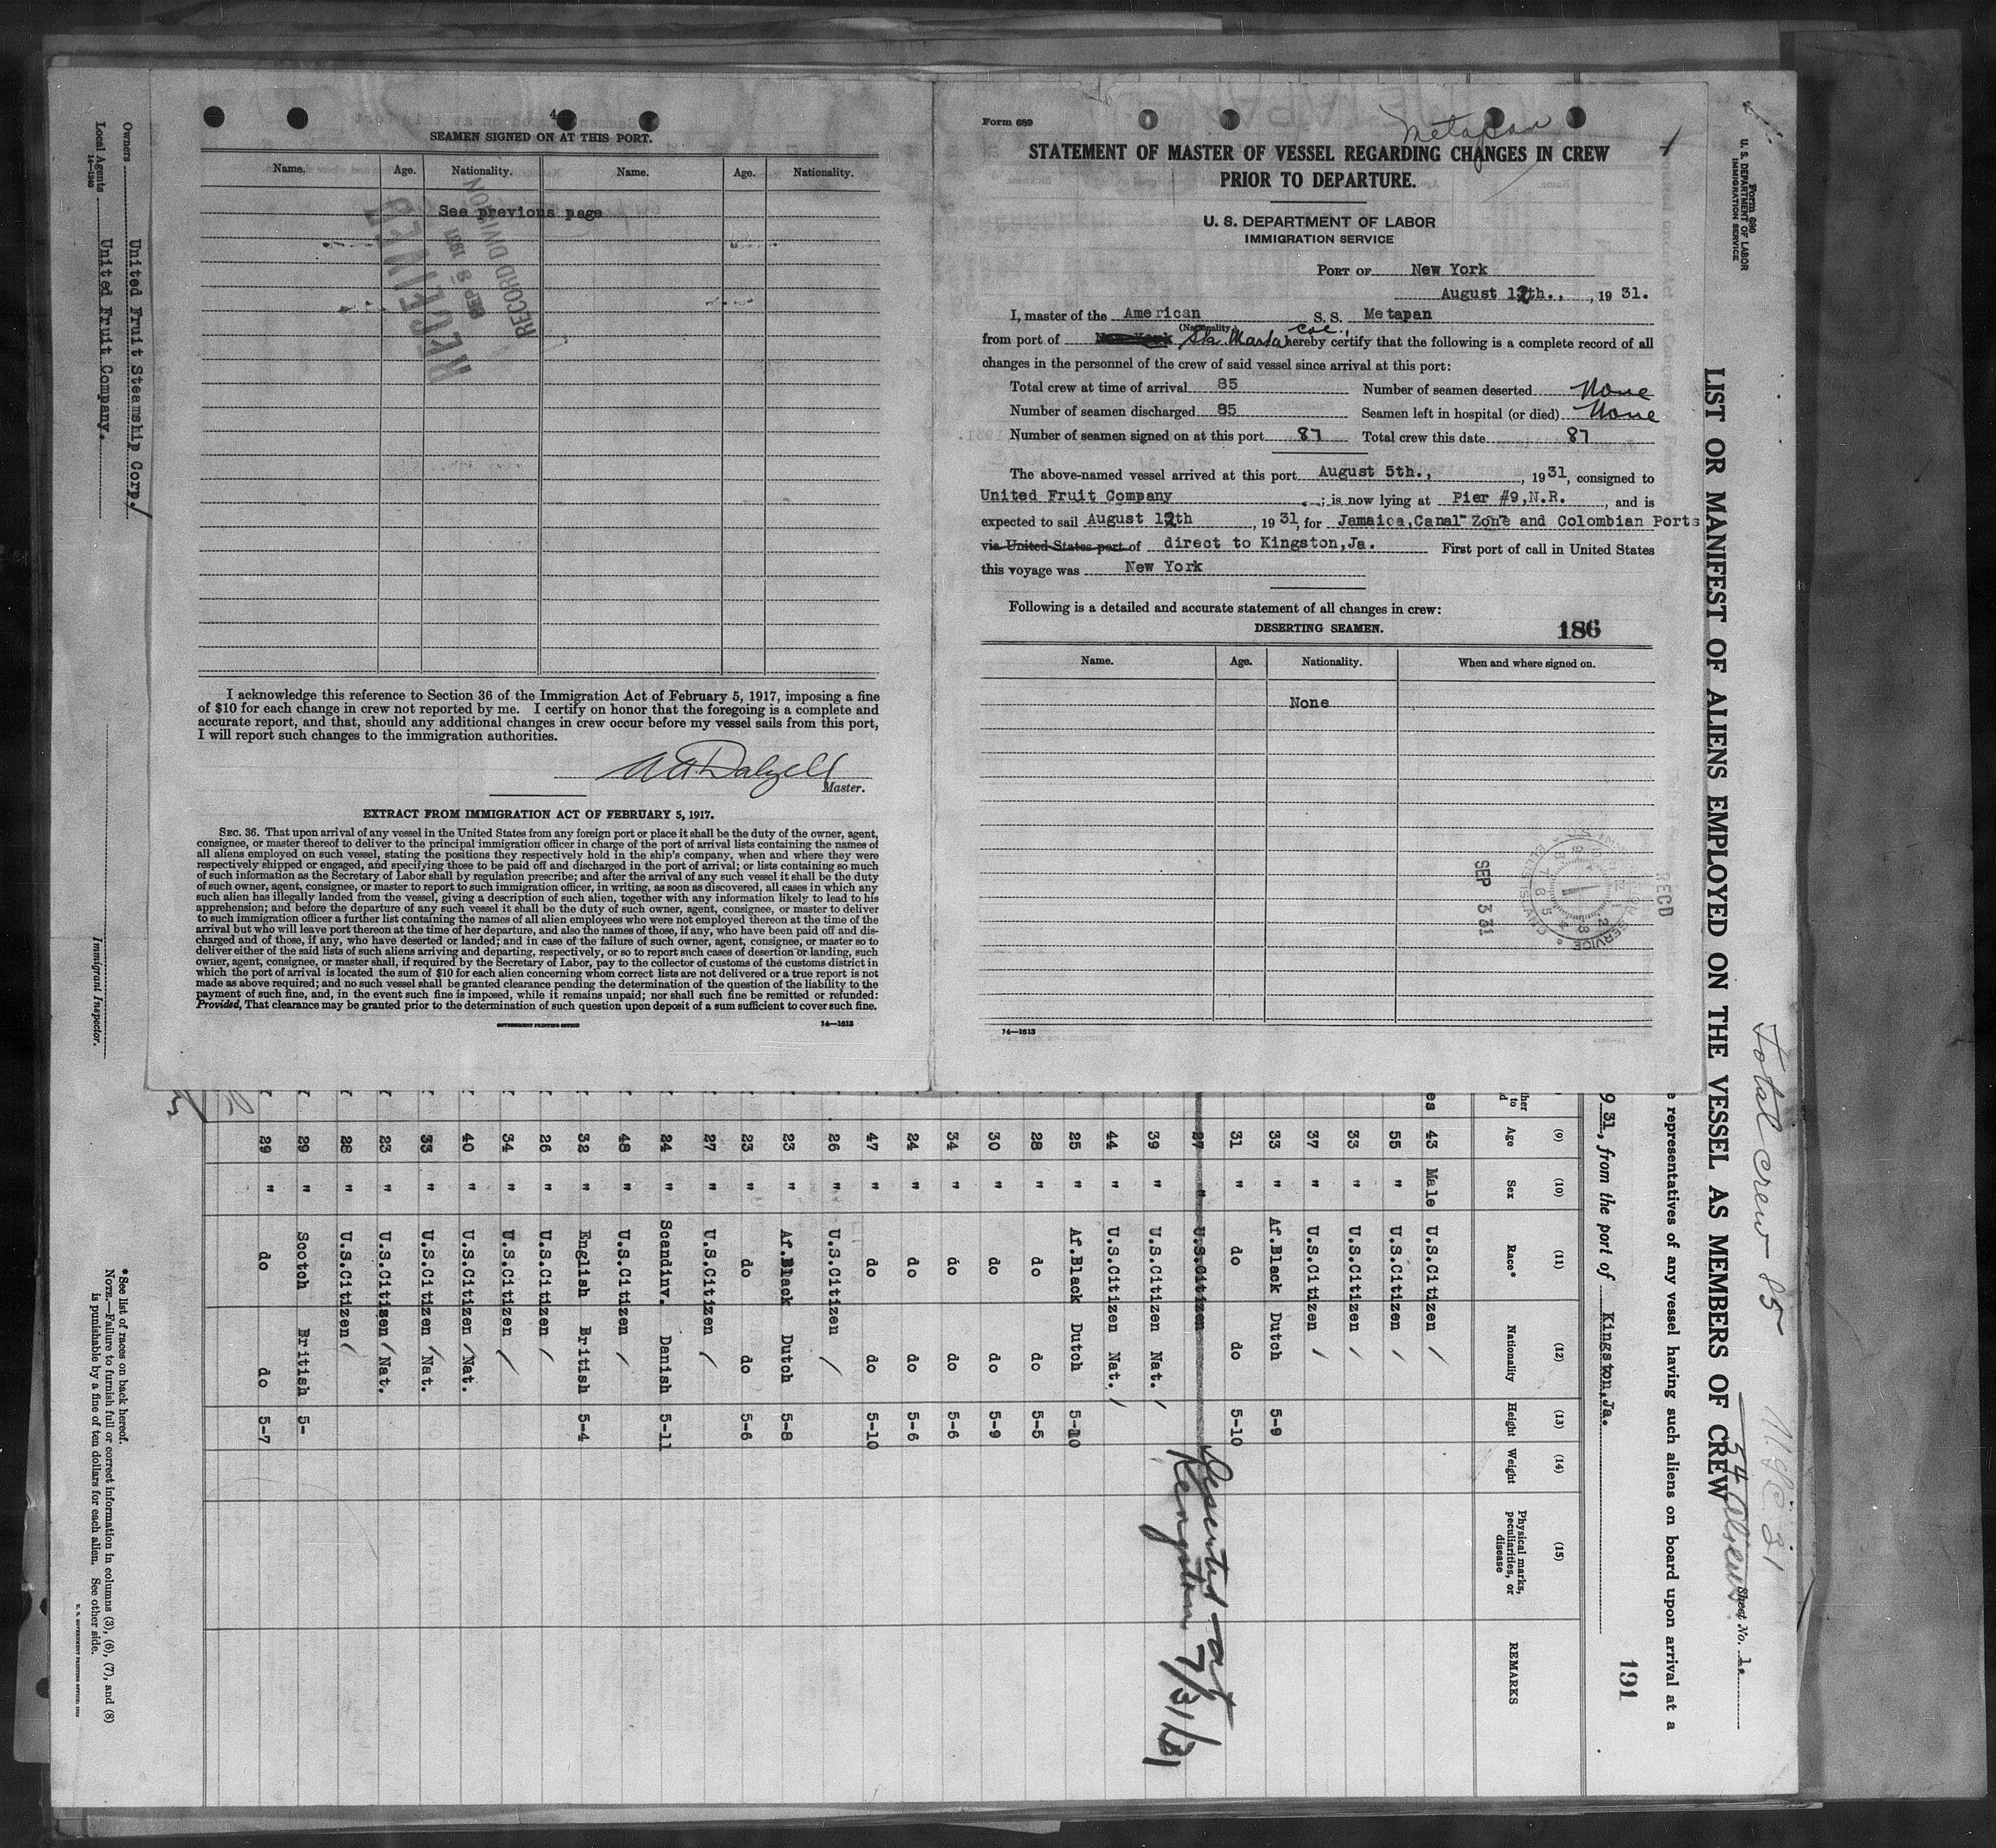 4
SEAMEN SIGNED ON AT THIS PORT.
Name. Age. Nationality. Name. Age. Nationality.
See previous page
RECEIVED
SEP 8 1931
RECORD DIVISION
I acknowledge this reference to Section 36 of the Immigration Act of February 5, 1917, imposing a fine
of $10 for each change in crew not reported by me. I certify on honor that the foregoing is a complete and
accurate report, and that, should any additional changes in crew occur before my vessel sails from this port,
I will report such changes to the immigration authorities.
Dalzell
Master.
EXTRACT FROM IMMIGRATION ACT OF FEBRUARY 5, 1917.
SEC. 36. That upon arrival of any vessel in the United States from any foreign port or place it shall be the duty of the owner, agent,
consignee, or master thereof to deliver to the principal immigration officer in charge of the port of arrival lists containing the names of
all aliens employed on such vessel, stating the positions they respectively hold in the ship's company, when and where they were
respectively shipped or engaged, and specifying those to be paid off and discharged in the port of arrival; or lists containing so much
of such information as the Secretary of Labor shall by regulation prescribe; and after the arrival of any such vessel it shall be the duty
of such owner, agent, consignee, or master to report to such immigration officer, in writing, as soon as discovered, all cases in which any
such alien has illegally landed from the vessel, giving a description of such alien, together with any information likely to lead to his
apprehension; and before the departure of any such vessel it shall be the duty of such owner, agent, consignee, or master to deliver
to such immigration officer a further list containing the names of all alien employees who were not employed thereon at the time of the
arrival but who will leave port thereon at the time of her departure, and also the names of those, if any, who have been paid off and dis-
charged and of those, if any, who have deserted or landed; and in case of the failure of such owner, agent, consignee, or master so to
deliver either of the said lists of such aliens arriving and departing, respectively, or so to report such cases of desertion or landing, such
owner, agent, consignee, or master shall, if required by the Secretary of Labor, pay to the collector of customs of the customs district in
which the port of arrival is located the sum of $10 for each alien concerning whom correct lists are not delivered or a true report is not
made as above required; and no such vessel shall be granted clearance pending the determination of the question of the liability to the
payment of such fine, and, in the event such fine is imposed, while it remains unpaid; nor shall such fine be remitted or refunded:
Provided, That clearance may be granted prior to the determination of such question upon deposit of a sum sufficient to cover such fine.
GOVERNMENT PRINTING OFFICE 14—1613
Form 689
Metapan
STATEMENT OF MASTER OF VESSEL REGARDING CHANGES IN CREW
PRIOR TO DEPARTURE.
U. S. DEPARTMENT OF LABOR
IMMIGRATION SERVICE
PORT OF New York
August 12th., , 19 31.
I, master of the American S. S. Metapan
(Nationality)
from port of Sta Marta Col., hereby certify that the following is a complete record of all
changes in the personnel of the crew of said vessel since arrival at this port:
Total crew at time of arrival 85 Number of seamen deserted None
Number of seamen discharged 85 Seamen left in hospital (or died) None
Number of seamen signed on at this port 87 Total crew this date 87
The above-named vessel arrived at this port August 5th., , 19 31, consigned to
United Fruit Company ; is now lying at Pier #9, N.R. , and is
expected to sail August 12th , 19 31, for Jamaica, Canal Zone and Colombian Ports
via United States port of direct to Kingston, Ja. First port of call in United States
this voyage was New York
Following is a detailed and accurate statement of all changes in crew:
DESERTING SEAMEN. 186
Name. Age. Nationality. When and where signed on.
None
RECD
SEP 3 31
14—1613
Form 680
U. S. DEPARTMENT OF LABOR
IMMIGRATION SERVICE
Total crew 85 USC 31
54 Aliens
Sheet No. 1.
LIST OR MANIFEST OF ALIENS EMPLOYED ON THE VESSEL AS MEMBERS OF CREW
representatives of any vessel having such aliens on board upon arrival at a
9 31, from the port of Kingston, Ja. 191
(9) (10) (11) (12) (13) (14) (15)
Age Sex Race* Nationality Height Weight Physical marks, peculiarities, or disease REMARKS
es 43 Male U.S.Citizen /
55 " U.S.Citizen /
33 " U.S.Citizen /
37 " U.S.Citizen /
33 " Af.Black Dutch 5-9
31 " do do 5-10
27 " U.S.Citizen Deserted at
Kengston 7/31/31
39 " U.S.Citizen Nat. /
44 " U.S.Citizen Nat. /
25 " Af.Black Dutch 5-10
28 " do do 5-5
30 " do do 5-9
34 " do do 5-6
24 " do do 5-6
47 " do do 5-10
26 " U.S.Citizen /
23 " Af.Black Dutch 5-8
23 " do do 5-6
27 " U.S.Citizen /
24 " Scandinv. Danish 5-11
48 " U.S.Citizen /
32 " English British 5-4
26 " U.S.Citizen /
34 " U.S.Citizen /
40 " U.S.Citizen / Nat.
33 " U.S.Citizen / Nat.
23 " U.S.Citisen / Nat.
28 " U.S.Citizen /
29 " Scotch British 5-
29 " do do 5-7
*See list of races on back hereof.
NOTE.—Failure to furnish full or correct information in columns (3), (6), (7), and (8)
is punishable by a fine of ten dollars for each alien. See other side.
Owners United Fruit Steamship Corp.
Local Agents United Fruit Company.
14—1240
Immigrant Inspector.